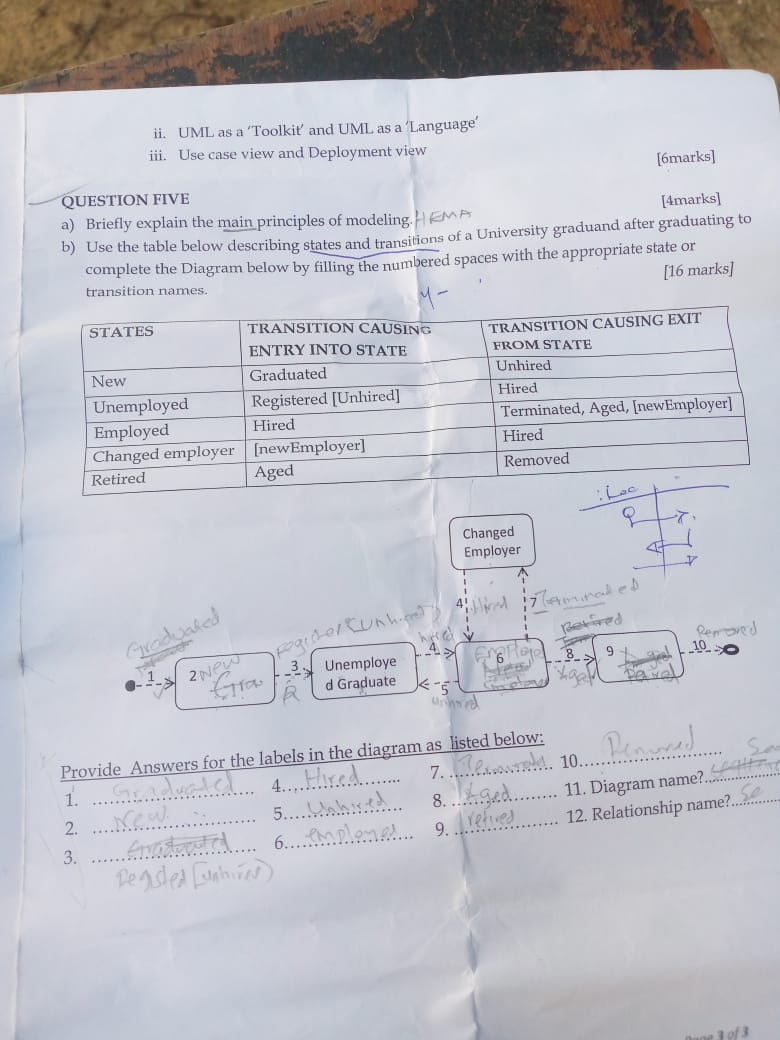 ii. UML as a 'Toolkit' and UML as a 'Language'
iii. Use case view and Deployment view
[6marks]
QUESTION FIVE
[4marks]
a) Briefly explain the main principles of modeling. HEMA
b) Use the table below describing states and transitions of a University graduand after graduating to
complete the Diagram below by filling the numbered spaces with the appropriate state or
transition names.
[16 marks]
STATES TRANSITION CAUSING ENTRY INTO STATE TRANSITION CAUSING EXIT FROM STATE
New Graduated Unhired
Unemployed Registered [Unhired] Hired
Employed Hired Terminated, Aged, [newEmployer]
Changed employer [newEmployer] Hired
Retired Aged Removed
: Loc
Changed
Employer
4 Hired 7 Terminated
Graduated
Register [Unhired]
Hired
Retired
Removed
1
2 New
Gra
3
R
Unemploye
d Graduate
4
5
Unhired
6
8
Aged
9
10
Provide Answers for the labels in the diagram as listed below:
1. Graduated 4. Hired 7. 10. Removed
2. New 5. Unhired 8. Aged 11. Diagram name?
3. Graduated 6. employed 9. retired 12. Relationship name?
[Unhired]
Page 3 of 3